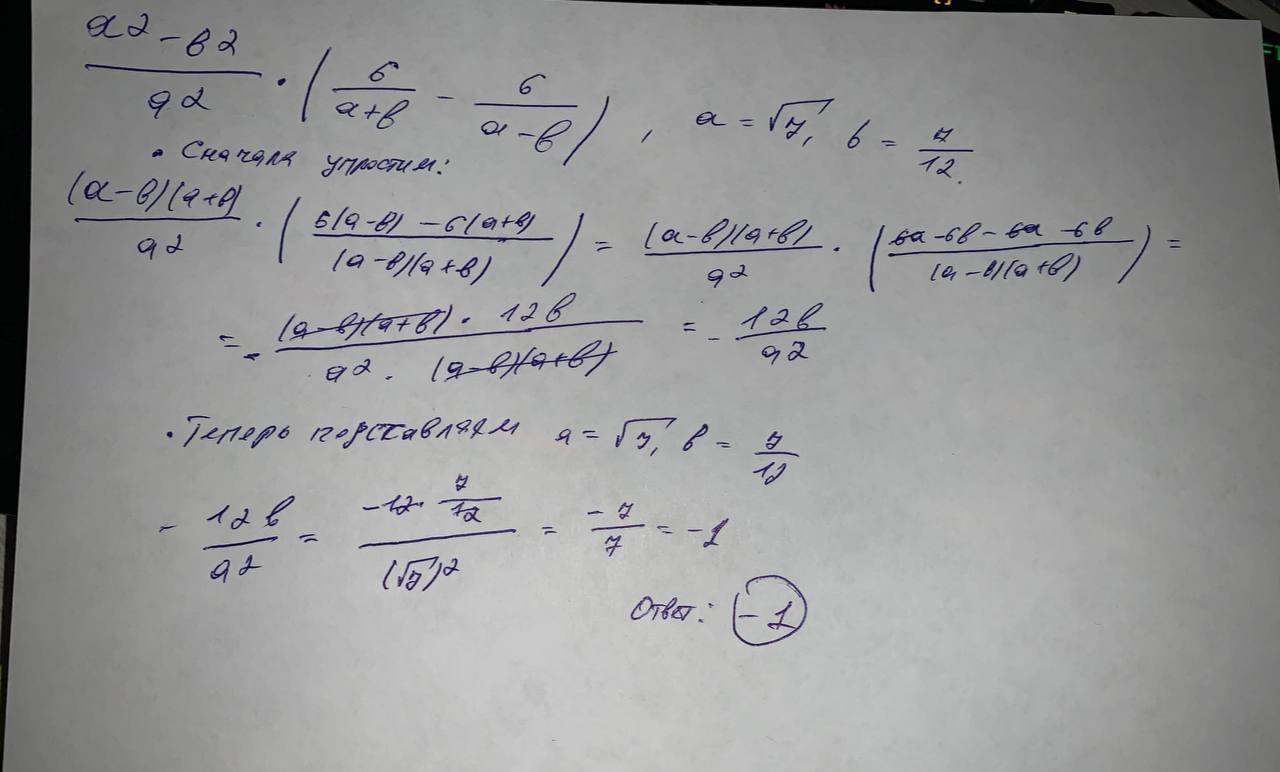 a2 - b2 / a2 · ( 6 / a+b - 6 / a-b ) , a = √7, b = 7/12.
• Сначала упростим:
(a-b)(a+b) / a2 · ( 6(a-b) - 6(a+b) / (a-b)(a+b) ) = (a-b)(a+b) / a2 · ( 6a-6b-6a-6b / (a-b)(a+b) ) =
= - (a-b)(a+b) · 12b / a2 · (a-b)(a+b) = - 12b / a2
• Теперь подставляем a = √7, b = 7/12
- 12b / a2 = -12 · 7/12 / (√7)2 = -7/7 = -1
Ответ: -1